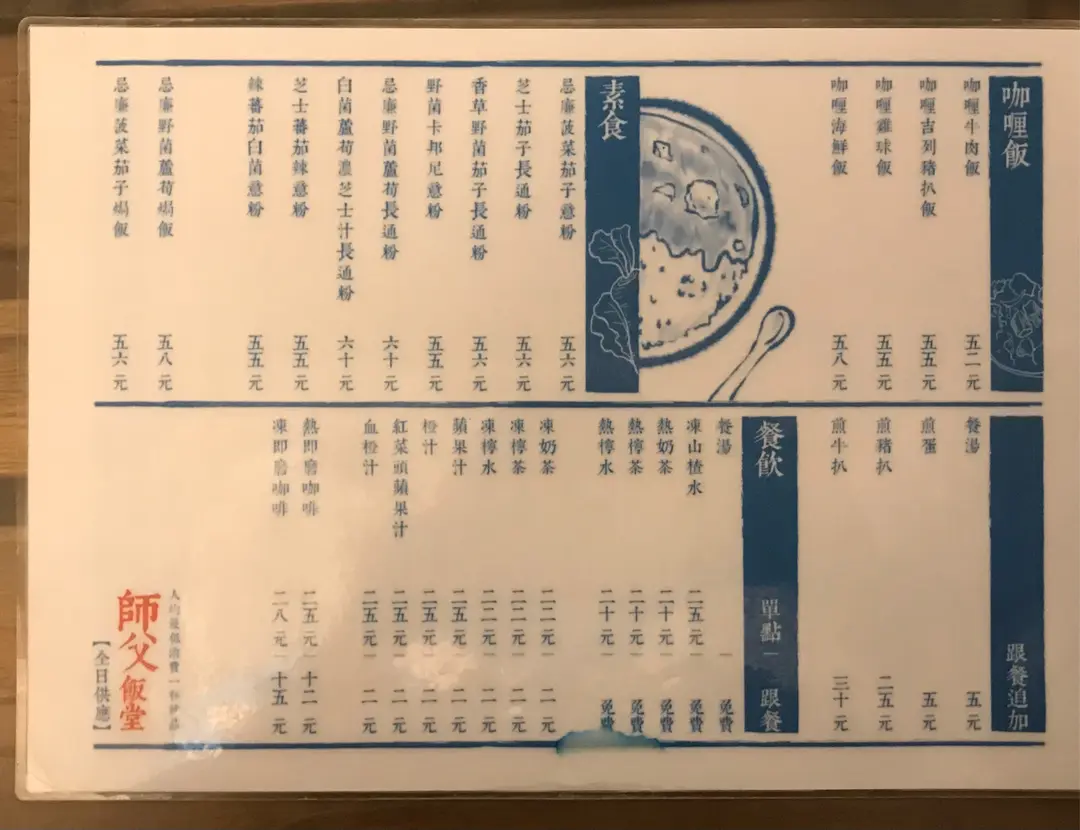 咖喱飯
咖喱牛肉飯 五二元
咖喱吉列豬扒飯 五五元
咖喱雞球飯 五五元
咖喱海鮮飯 五八元
素食
忌廉菠菜茄子意粉 五六元
芝士茄子長通粉 五六元
香草野菌茄子長通粉 五六元
野菌卡邦尼意粉 五五元
忌廉野菌蘆荀長通粉 六十元
白菌蘆荀濃芝士汁長通粉 六十元
芝士蕃茄辣意粉 五五元
辣蕃茄白菌意粉 五五元
忌廉野菌蘆荀焗飯 五八元
忌廉菠菜茄子焗飯 五六元
跟餐追加
餐湯 五元
煎蛋 五元
煎豬扒 二五元
煎牛扒 三十元
餐飲 單點 | 跟餐
餐湯 | 免費
凍山楂水 二五元 | 免費
熱奶茶 二十元 | 免費
熱檸茶 二十元 | 免費
熱檸水 二十元 | 免費
凍奶茶 二二元 | 二元
凍檸茶 二二元 | 二元
凍檸水 二二元 | 二元
蘋果汁 二五元 | 二元
橙汁 二五元 | 二元
紅菜頭蘋果汁 二五元 | 二元
血橙汁 二五元 | 二元
熱即磨咖啡 二五元 | 十二元
凍即磨咖啡 二八元 | 十五元
人均最低消費一
師父飯堂
【全日供應】